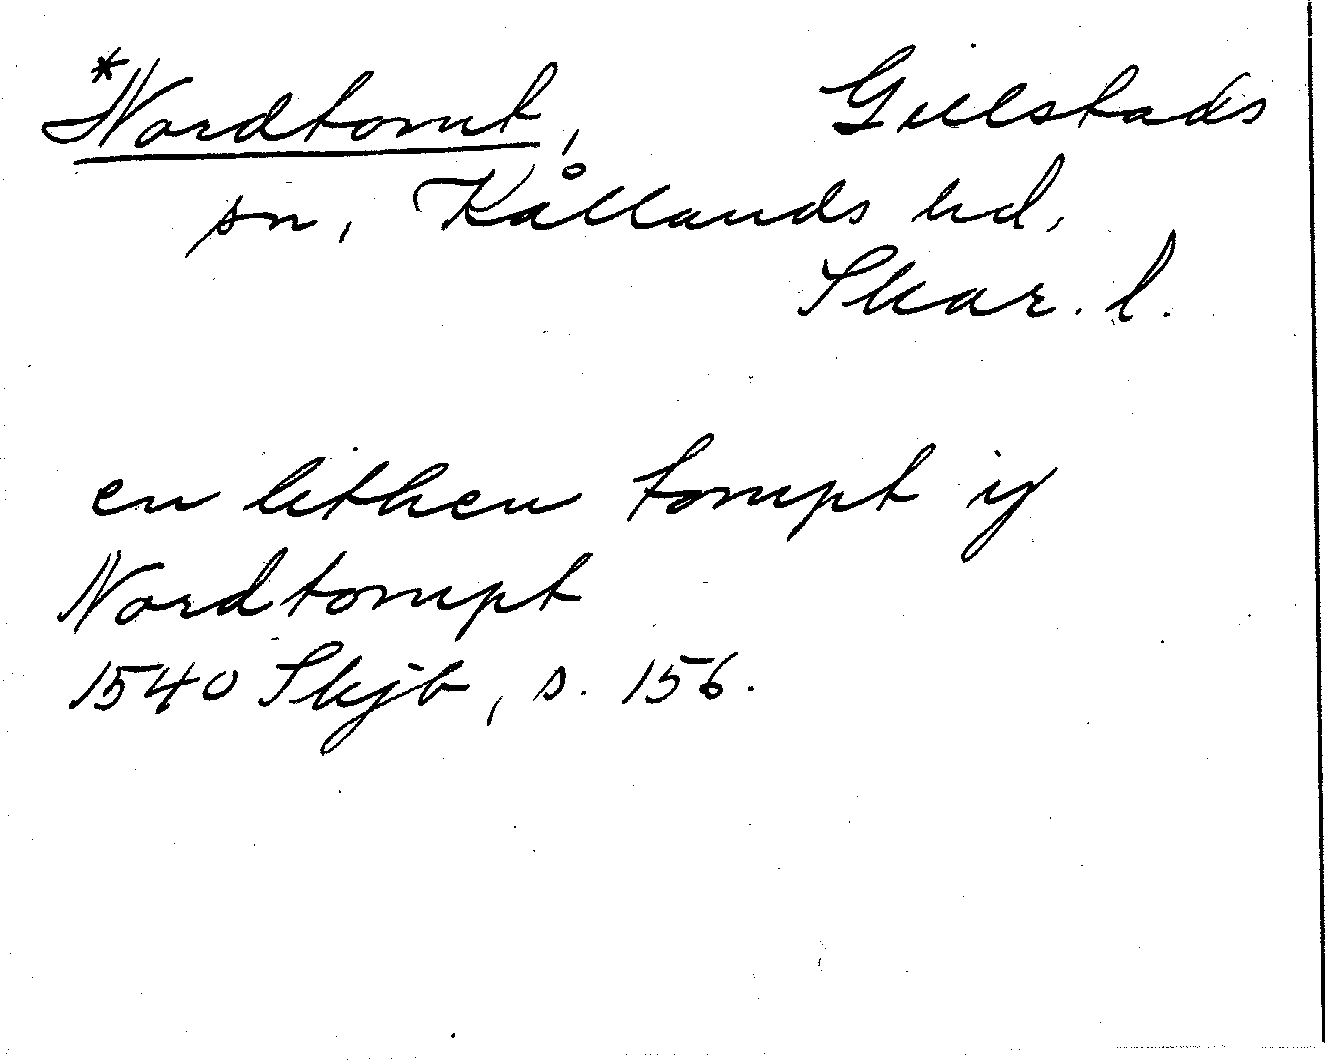 *Nordtomt, Gillstads
sn, Kållands hd,
Skar. l.
en lithen tompt ij
Nordtompt
1540 Skjb, s. 156.